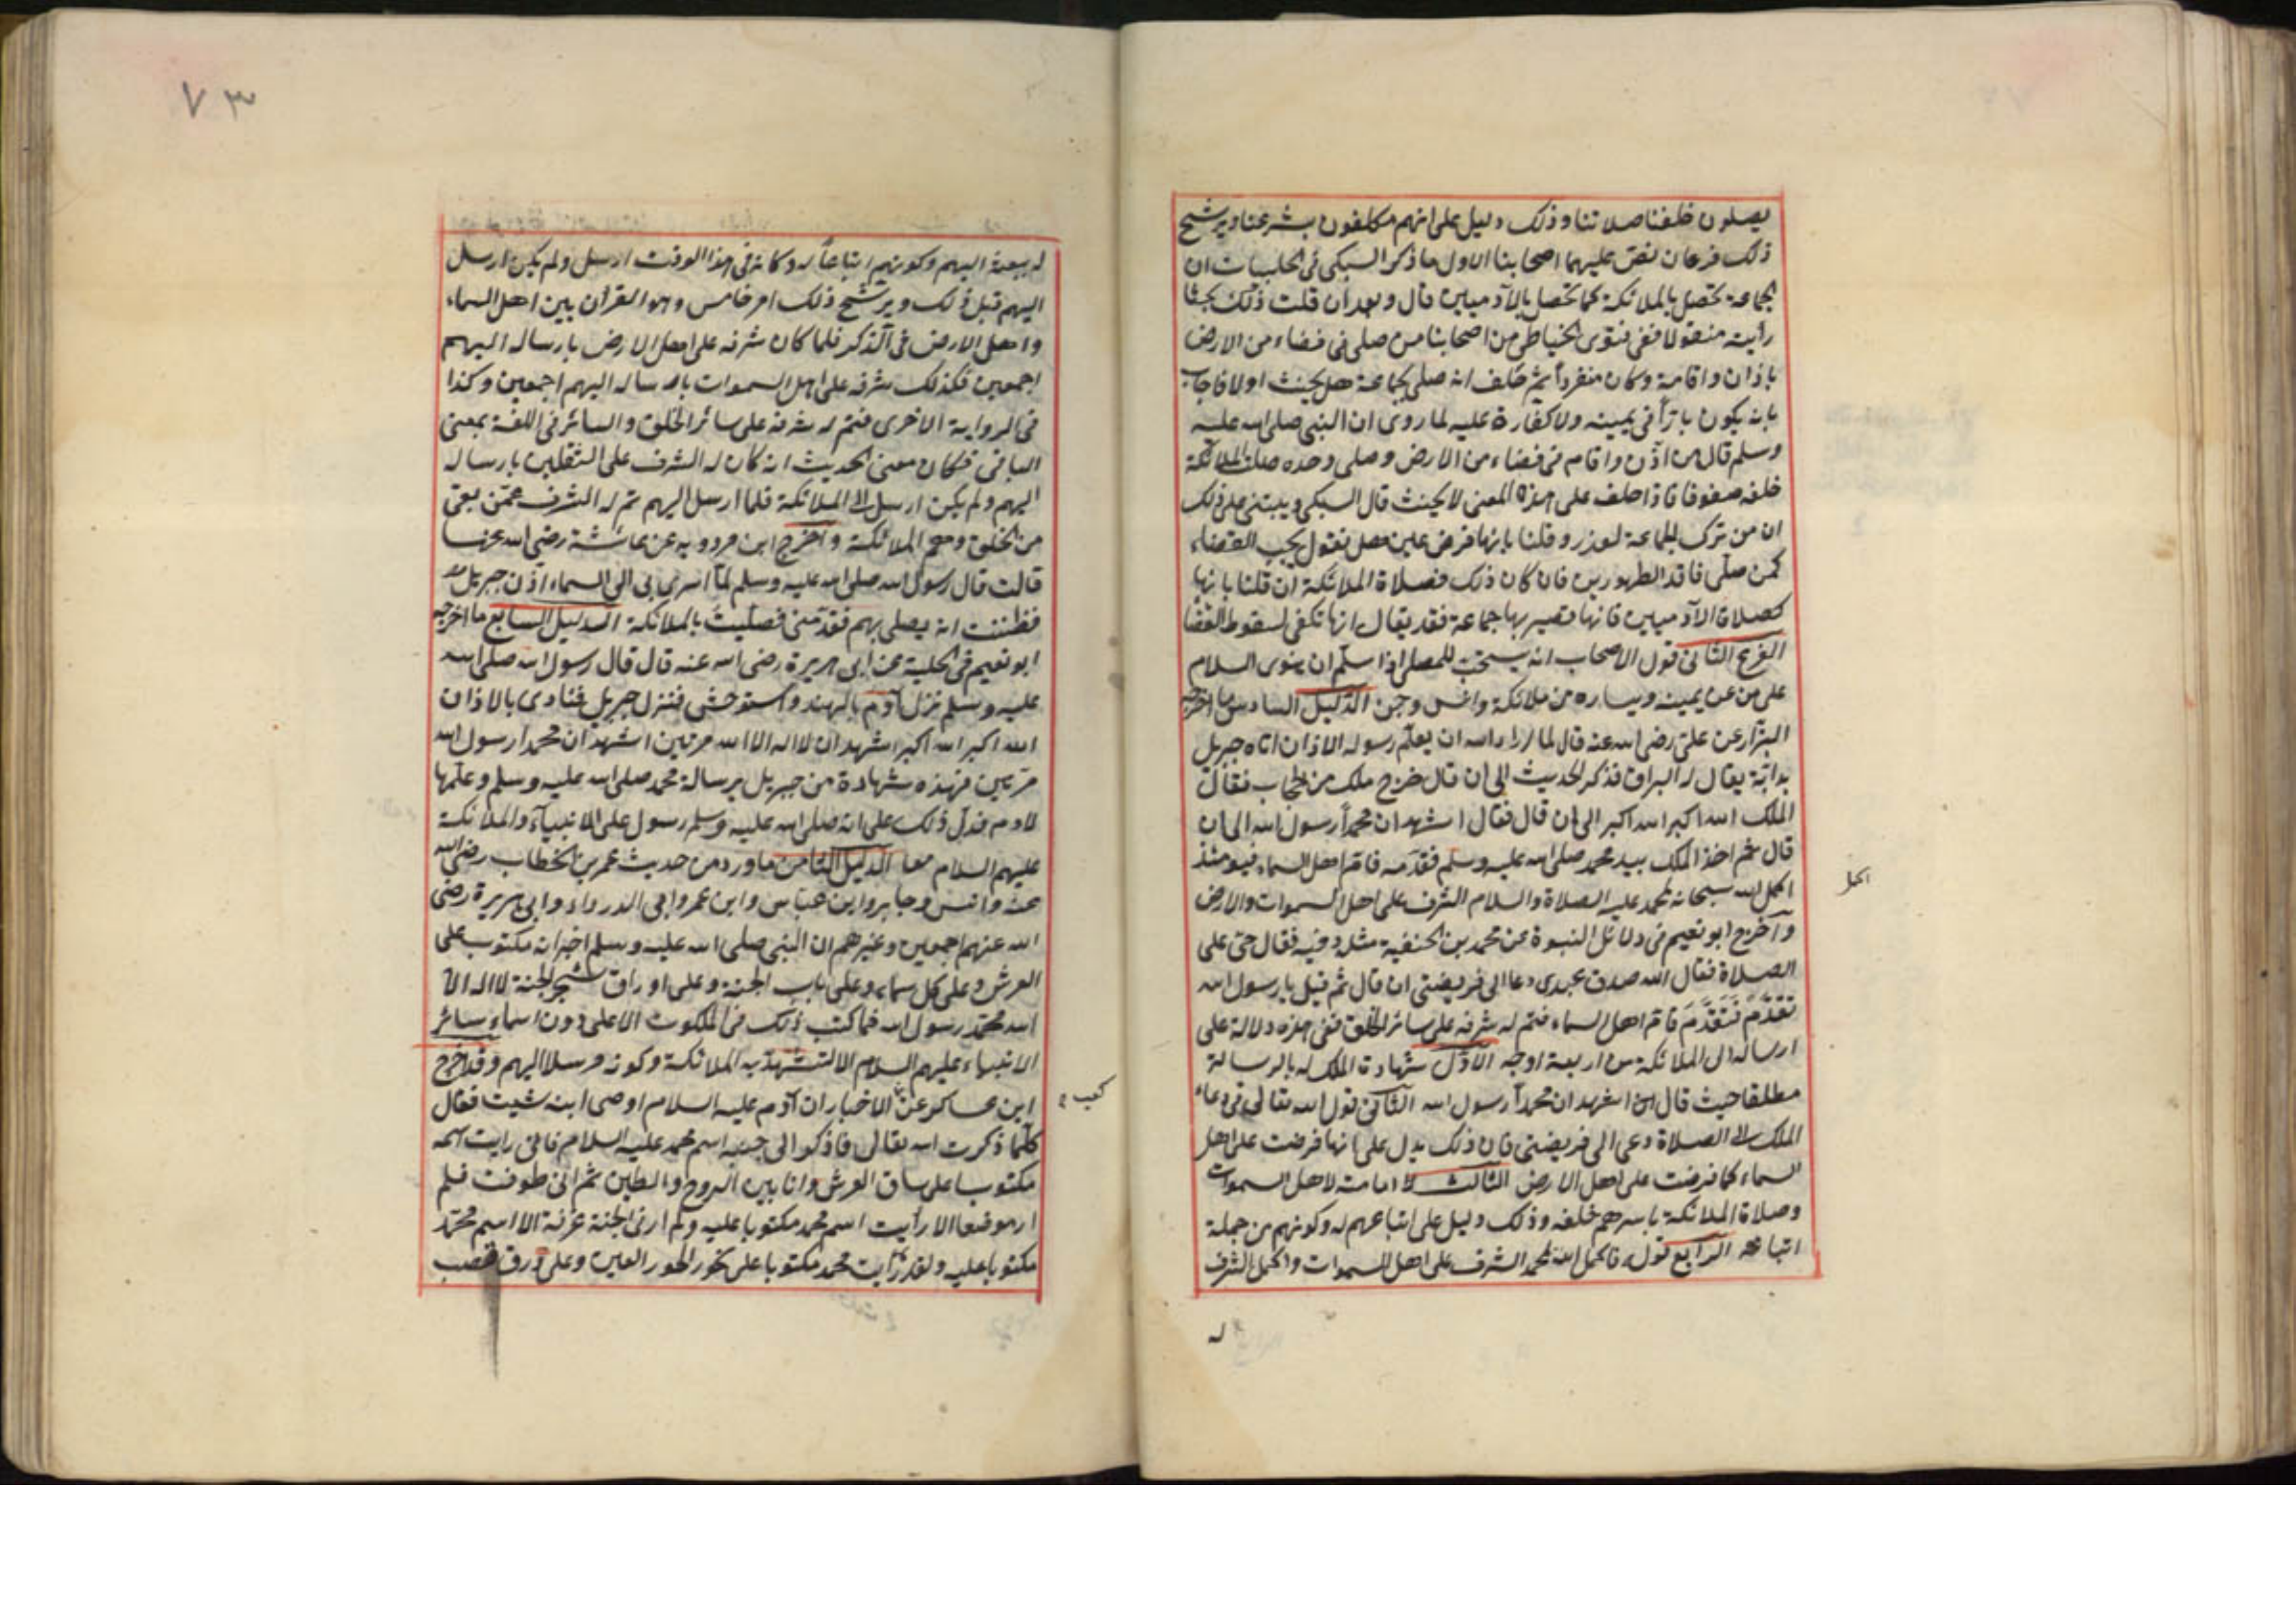 يصلون خلفنا صلاتنا وذلك دليل على انهم مكلفون بشرعنا ويرشح
ذلك فرعان نص عليهما اصحابنا الاول ما ذكر السبكى فى الحلبيات ان
الجماعة تحصل بالملائكة كما تحصل بالآدميين قال وبعد ان قلت ذلك بحثا
رأيته منقولا ففى فتوى الحناطى من اصحابنا من صلى فى فضاء من الارض
باذان واقامة وكان منفردا ثم حلف انه صلى بجماعة هل يحنث اولا فاجاب
بانه يكون بارّاً فى يمينه ولا كفارة عليه لما روى ان النبى صلى الله عليه
وسلم قال من اذّن واقام فى فضاء من الارض وصلى وحده صلت الملائكة
خلفه صفوفا فاذا حلف على هذا المعنى لا يحنث قال السبكى ويبتنى على ذلك
ان من ترك الجماعة لعذر وقلنا بانها فرض عين هل نقول يجب القضاء
كمن صلّى فاقد الطهورين فان كان ذلك فصلاة الملائكة ان قلنا بانها
كصلاة الآدميين فانها تصير بها جماعة فقد يقال انها تكفى لسقوط القضا
الفرع الثانى قول الاصحاب انه يستحب للمصلى اذا سلّم ان ينوى السلام
على من عن يمينه ويساره من ملائكة وانس وجن الدليل السادس ما اخرجه
البزّار عن علىّ رضى الله عنه قال لما اراد الله ان يعلّم رسوله الاذان اتاه جبريل
بدابّة يقال له البراق فذكر الحديث الى ان قال خرج ملك من الحجاب فقال
الملك الله اكبر الله اكبر الى ان قال فقال اشهد ان محمداً رسول الله الى ان
قال ثم اخذ الملك بيد محمد صلى الله عليه وسلم فقدّمه فامّ اهل السماء فيومئذ
اكمل الله سبحانه لمحمد عليه الصلاة والسلام الشرف على اهل السموات والارض
اكمل
وأخرج ابو نعيم فى دلائل النبوة عن محمد بن الحنفية مثله وفيه فقال حىّ على
الصلاة فقال الله صدق عبدى دعا الى فريضتى ان قال ثم قيل يا رسول الله
تقدَّم فتقدَّم فامّ اهل السماء فتم له شرفه على سائر الخلق ففى هذه دلالة على
ارساله الى الملائكة من اربعة اوجه الاوّل شهادة الملك له بالرسالة
مطلقا حيث قال اشهد ان محمداً رسول الله الثانى قول الله تعالى فى دعاء
الملك الى الصلاة دعى الى فريضتى فان ذلك يدل على انها فرضت على اهل
السماء كما فرضت على اهل الارض الثالث امامته لاهل السموات
وصلاة الملائكة باسرهم خلفه وذلك دليل على اتباعهم له وكونهم من جملة
اتباعه الرابع قوله فاكمل الله لمحمد الشرف على اهل السموات واكمل الشرف
له
٧٣
له ببعثه اليهم وكونهم اتباعاً له وكانه فى هذا الوقت ارسل ولم يكن ارسل
اليهم قبل ذلك ويرشح ذلك امر خامس وهو القران بين اهل السماء
واهل الارض فى الذكر فلما كان شرفه على اهل الارض بارساله اليهم
اجمعين فكذلك شرفه على اهل السموات بارساله اليهم اجمعين وكذا
فى الرواية الاخرى فتم له شرفه على سائر الخلق والسائر فى اللغة بمعنى
الباقى فكان معنى الحديث انه كان له الشرف على الثقلين بارساله
اليهم ولم يكن ارسل الى الملائكة فلما ارسل اليهم تم له الشرف عمّن بقى
من الخلق وهم الملائكة وأخرج ابن مردويه عن عائشة رضى الله عنها
قالت قال رسول الله صلى الله عليه وسلم لمّا اسرى بى الى السماء اذّن جبريل
فظننت انه يصلى بهم فقدمّنى فصلّيت بالملائكة الدليل السابع ما اخرجه
ابو نعيم فى الحلية عن ابى هريرة رضى الله عنه قال قال رسول الله صلى الله
عليه وسلم نزل آدم بالهند واستوحش فنزل جبريل فنادى بالاذان
الله اكبر الله اكبر اشهد ان لا اله الا الله مرتين اشهد ان محمدا رسول الله
مرتين فهذه شهادة من جبريل برسالة محمد صلى الله عليه وسلم وعلّمها
لادم فدلّ ذلك على انه صلى الله عليه وسلم رسول على الانبيآء والملائكة
عليهم السلام معا الدليل الثامن ما ورد من حديث عمر بن الخطاب رضى الله
عنه وانس وجابر وابن عباس وابن عمر وابى الدرداء وابى هريرة رضى
الله عنهم اجمعين وغيرهم ان النبى صلى الله عليه وسلم اخبر انه مكتوب على
العرش وعلى كل سماء وعلى باب الجنة وعلى اوراق شجر الجنة لا اله الا
الله محمّد رسول الله فما كتب ذلك فى الملكوت الاعلى دون اسماء سائر
الانبياء عليهم السلام الا لتشهد به الملائكة وكونه مرسلا اليهم وقد اخرج
ابن عساكر عن الاخبار ان آدم عليه السلام اوصى ابنه شيت فقال
كعب
كلّما ذكرت الله تعالى فاذكر الى جنبه اسم محمد عليه السلام فانى رايت اسمه
مكتوبا على ساق العرش وانا بين الروح والطين ثم انى طوفت فلم
ار موضعا الا رأيت اسم محمد مكتوبا عليه ولم ار فى الجنة غرفة الا اسم محمّد
مكتوبا عليه ولقد رأيت محمد مكتوبا على نحور الحور العين وعلى ورق قصب